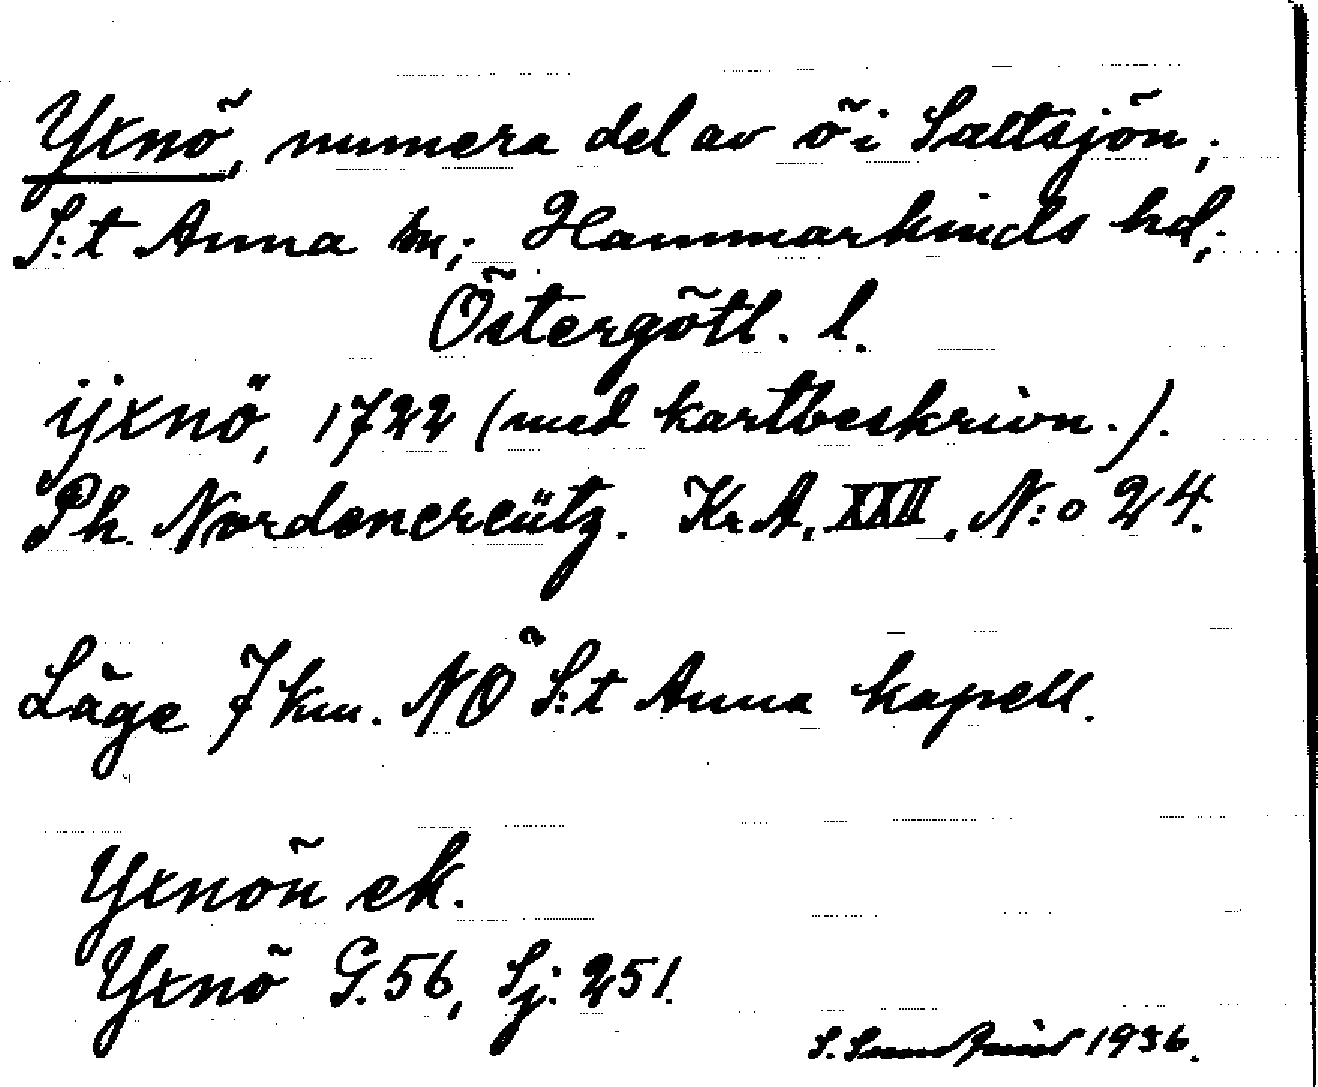 Yxnö, numera del av ö i Saltsjön,
S:t Anna sn; Hammarkinds hd;
Östergötl. l.
ijxnö, 1722 (med kartbeskrivn.).
Ph. Nordencreütz. Kr A. XXII, N:o 24.
Läge 7 km. NO S:t Anna kapell.
Yxnön ek.
Yxnö G. 56, Sj. 251.
S. 1936.